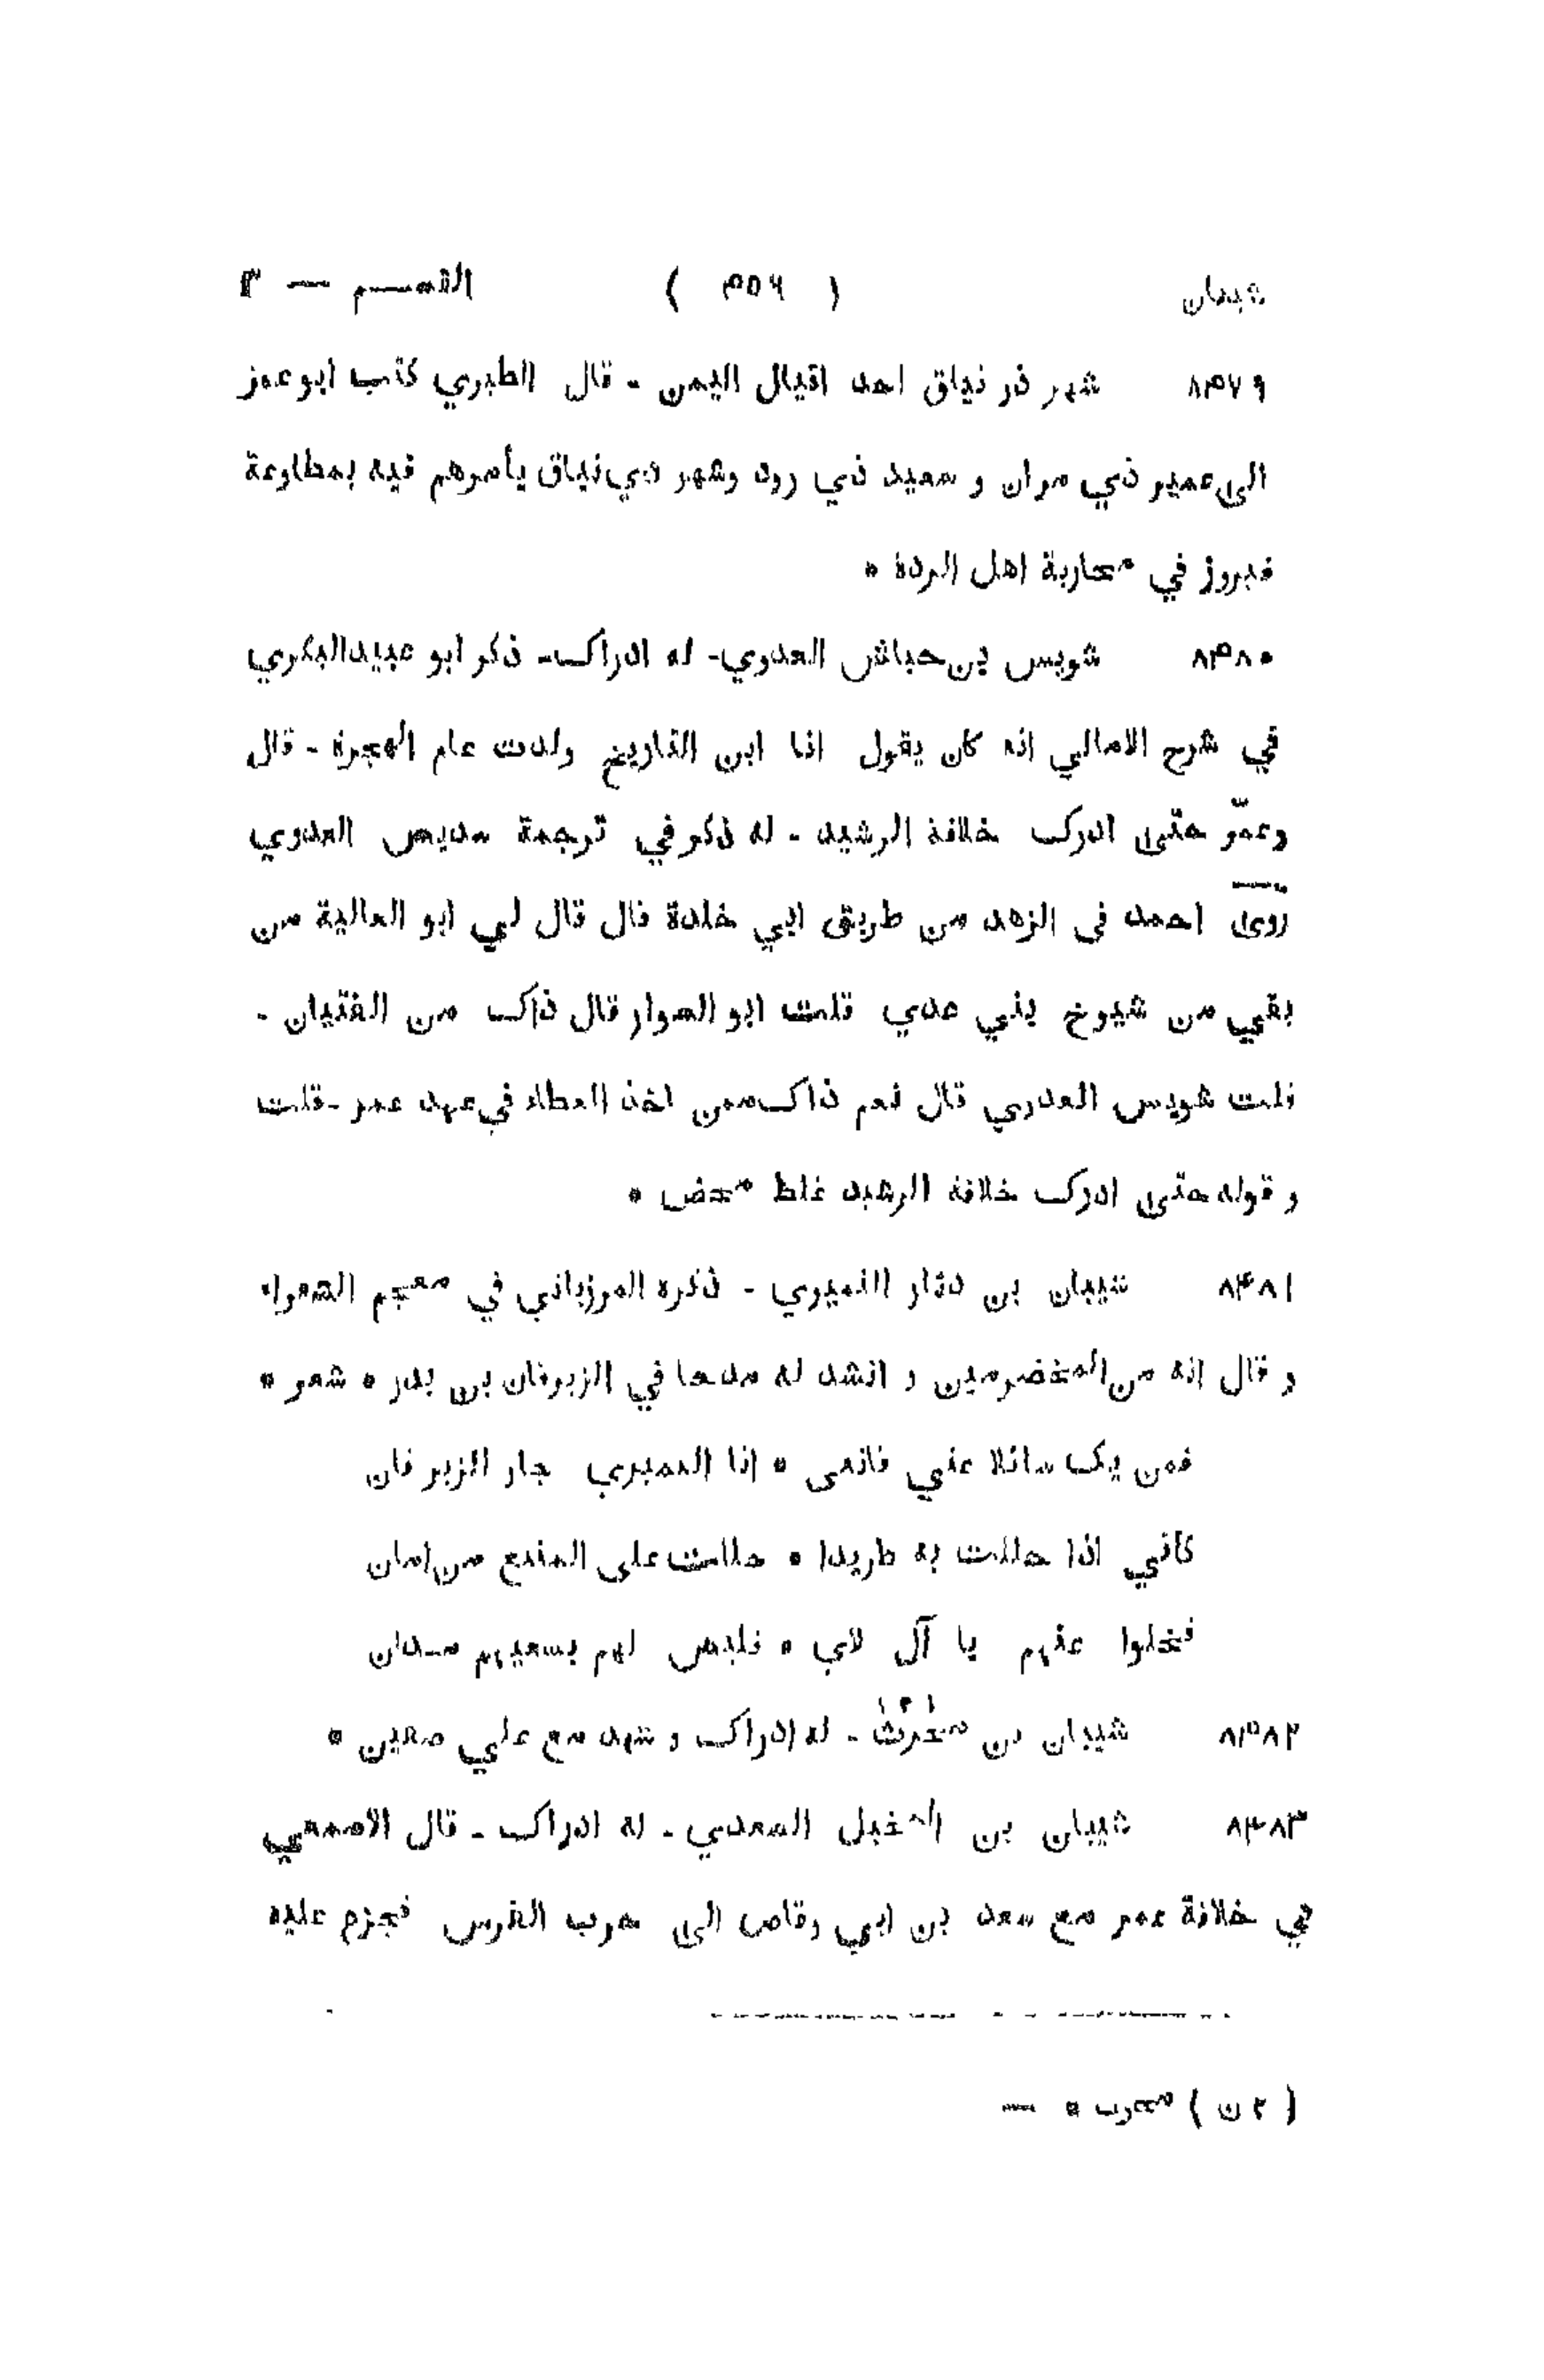 شيبان ( ۴۵۶ ) القسم — ۳
۸۴۷۹ شهر ذو نياق احد اقيال اليمن - قال الطبري كتب ابو بكر
الى عمير ذي مران و سعيد ذي رود وشهر ذي نياق يأمرهم فيه بمطاوعة
فيروز في محاربة اهل الردة *
۸۴۸۰ شويس بن حباش العدوي - له ادراك - ذكر ابو عبيد البكري
في شرح الامالي انه كان يقول انا ابن التاريخ ولدت عام الهجرة - قال
وعمّر حتى ادرك خلافة الرشيد - له ذكر في ترجمة سديس العدوي
روى احمد في الزهد من طريق ابي خلدة قال قال لي ابو العالية من
بقي من شيوخ بني عدي قلت ابو السوار قال ذاك من الفتيان -
قلت شويس العدوي قال نعم ذاك ممن اخذ العطاء في عهد عمر - قلت
و قوله حتى ادرك خلافة الرشيد غلط محض *
۸۴۸۱ شيبان بن دثار النميري - ذكره المرزباني في معجم الشعراء
و قال انه من المخضرمين و انشد له مدحا في الزبرقان بن بدر * شعر *
فمن يك سائلا عني فانى * انا النميري جار الزبرقان
كاني اذا حللت به طريدا * حللت على الممنع من ابان
فخلوا عنهم يا آل لأي * فليس لهم بسعيهم مدان
۸۴۸۲ شيبان بن محْرث - له ادراك و شهد مع علي صفين *
۸۴۸۳ شيبان بن المخبل السعدي - له ادراك - قال الاصمعي
في خلافة عمر مع سعد بن ابي وقاص الى حرب الفرس فجزع عليه
( ۲ ن ) محرب * —